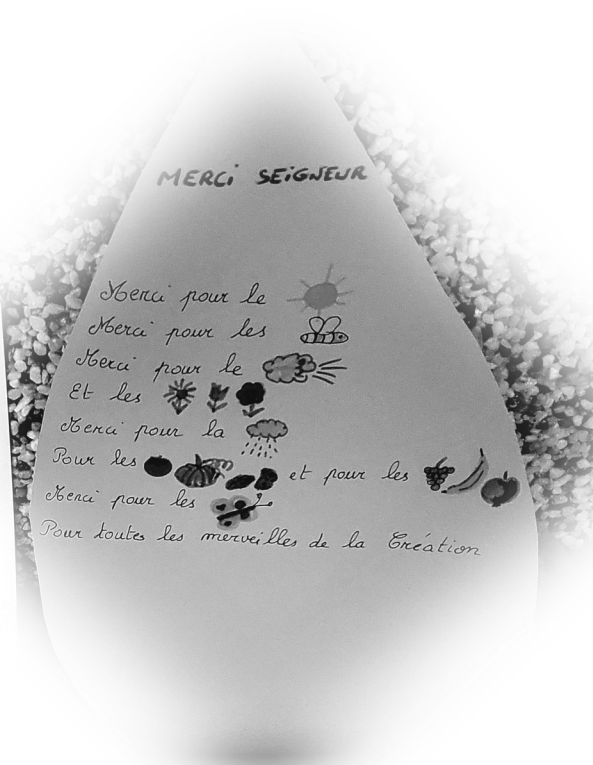 MERCi SEiGNEUR
Merci pour le
Merci pour les
Merci pour le
Et les
Merci pour la
Pour les et pour les
Merci pour les
Pour toutes les merveilles de la Création